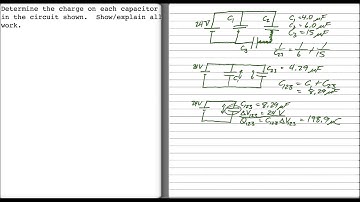 Determine the charge on each capacitor
in the circuit shown. Show/explain all
work.
24V C₁ C₂ C₁=4.0μF
C₂=6.0μF
C₃ C₃=15μF
1/C₂₃ = 1/6 + 1/15
C₁ C₂₃ = 4.29μF
C₁₂₃ = C₁ + C₂₃
= 8.29μF
24V C₁₂₃=8.29μF
ΔV₁₂₃=24V
Q₁₂₃=C₁₂₃ΔV₁₂₃=198.9μC